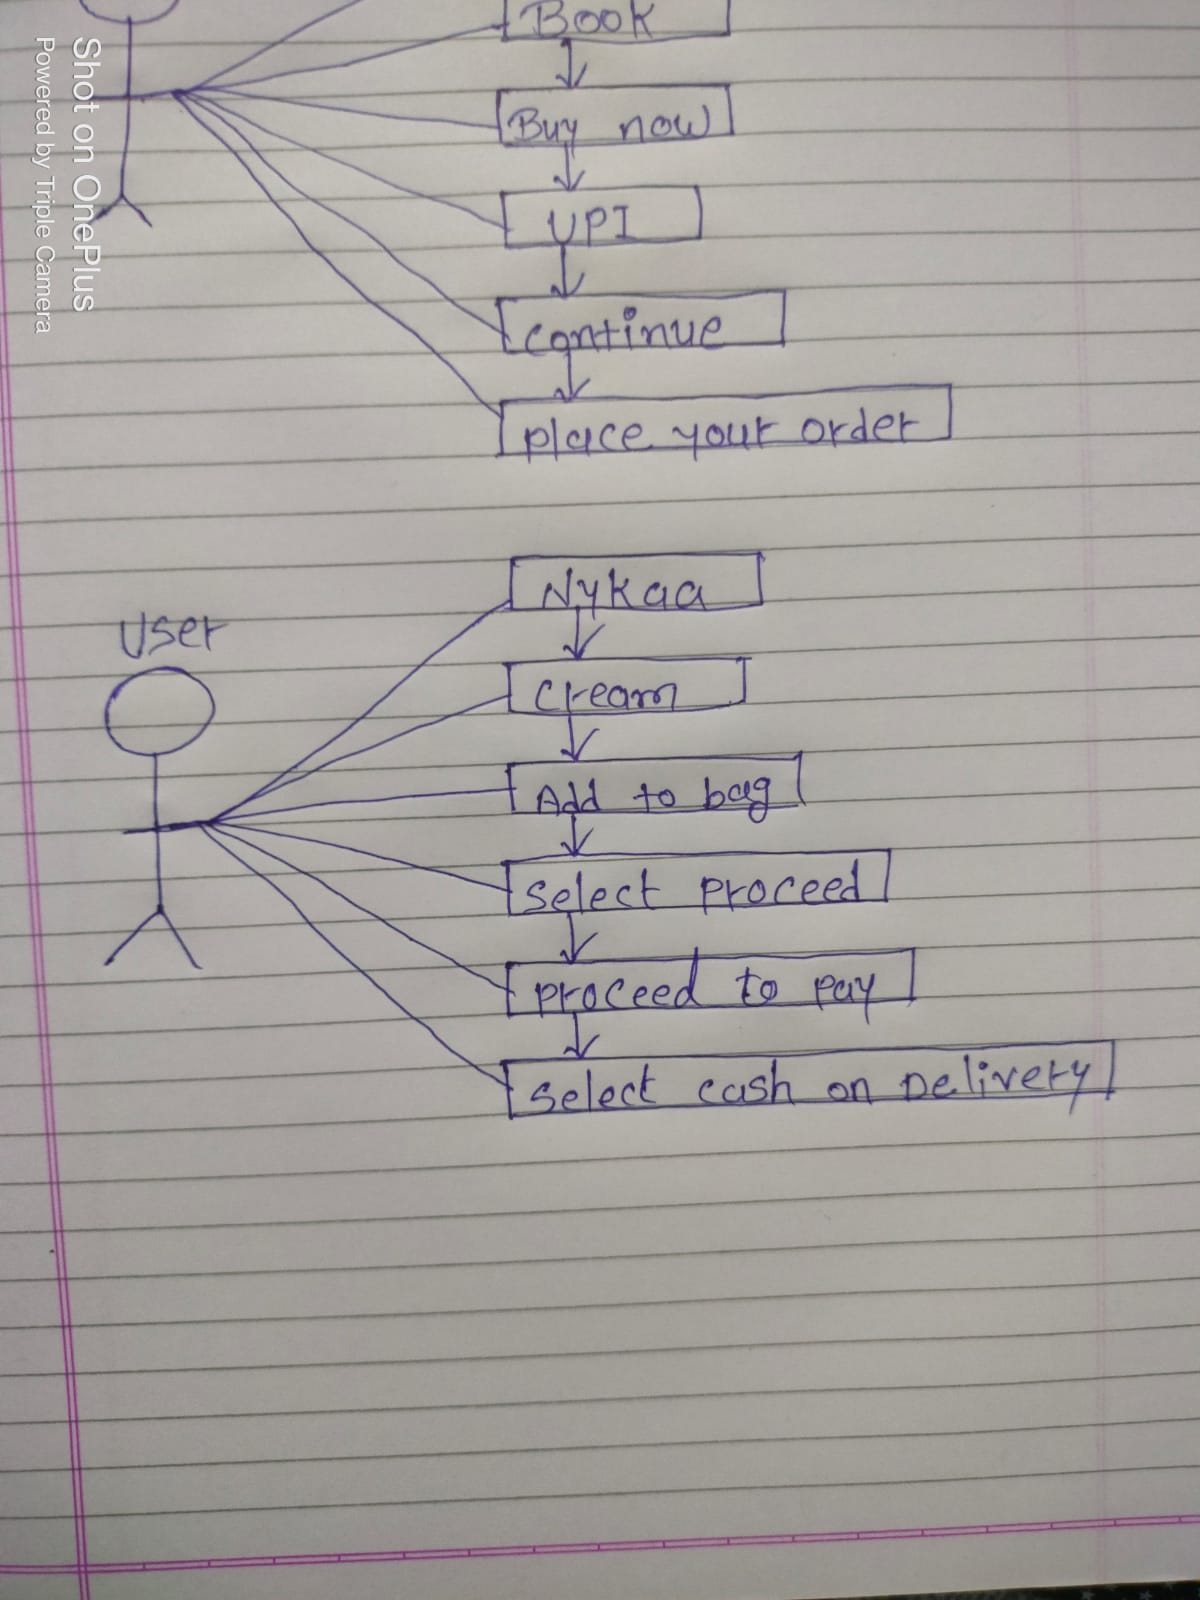 Shot on OnePlus
Powered by Triple Camera
Book
Buy now
UPI
continue
place your order
User
Nykaa
cream
Add to bag
Select proceed
proceed to pay
Select cash on Delivery